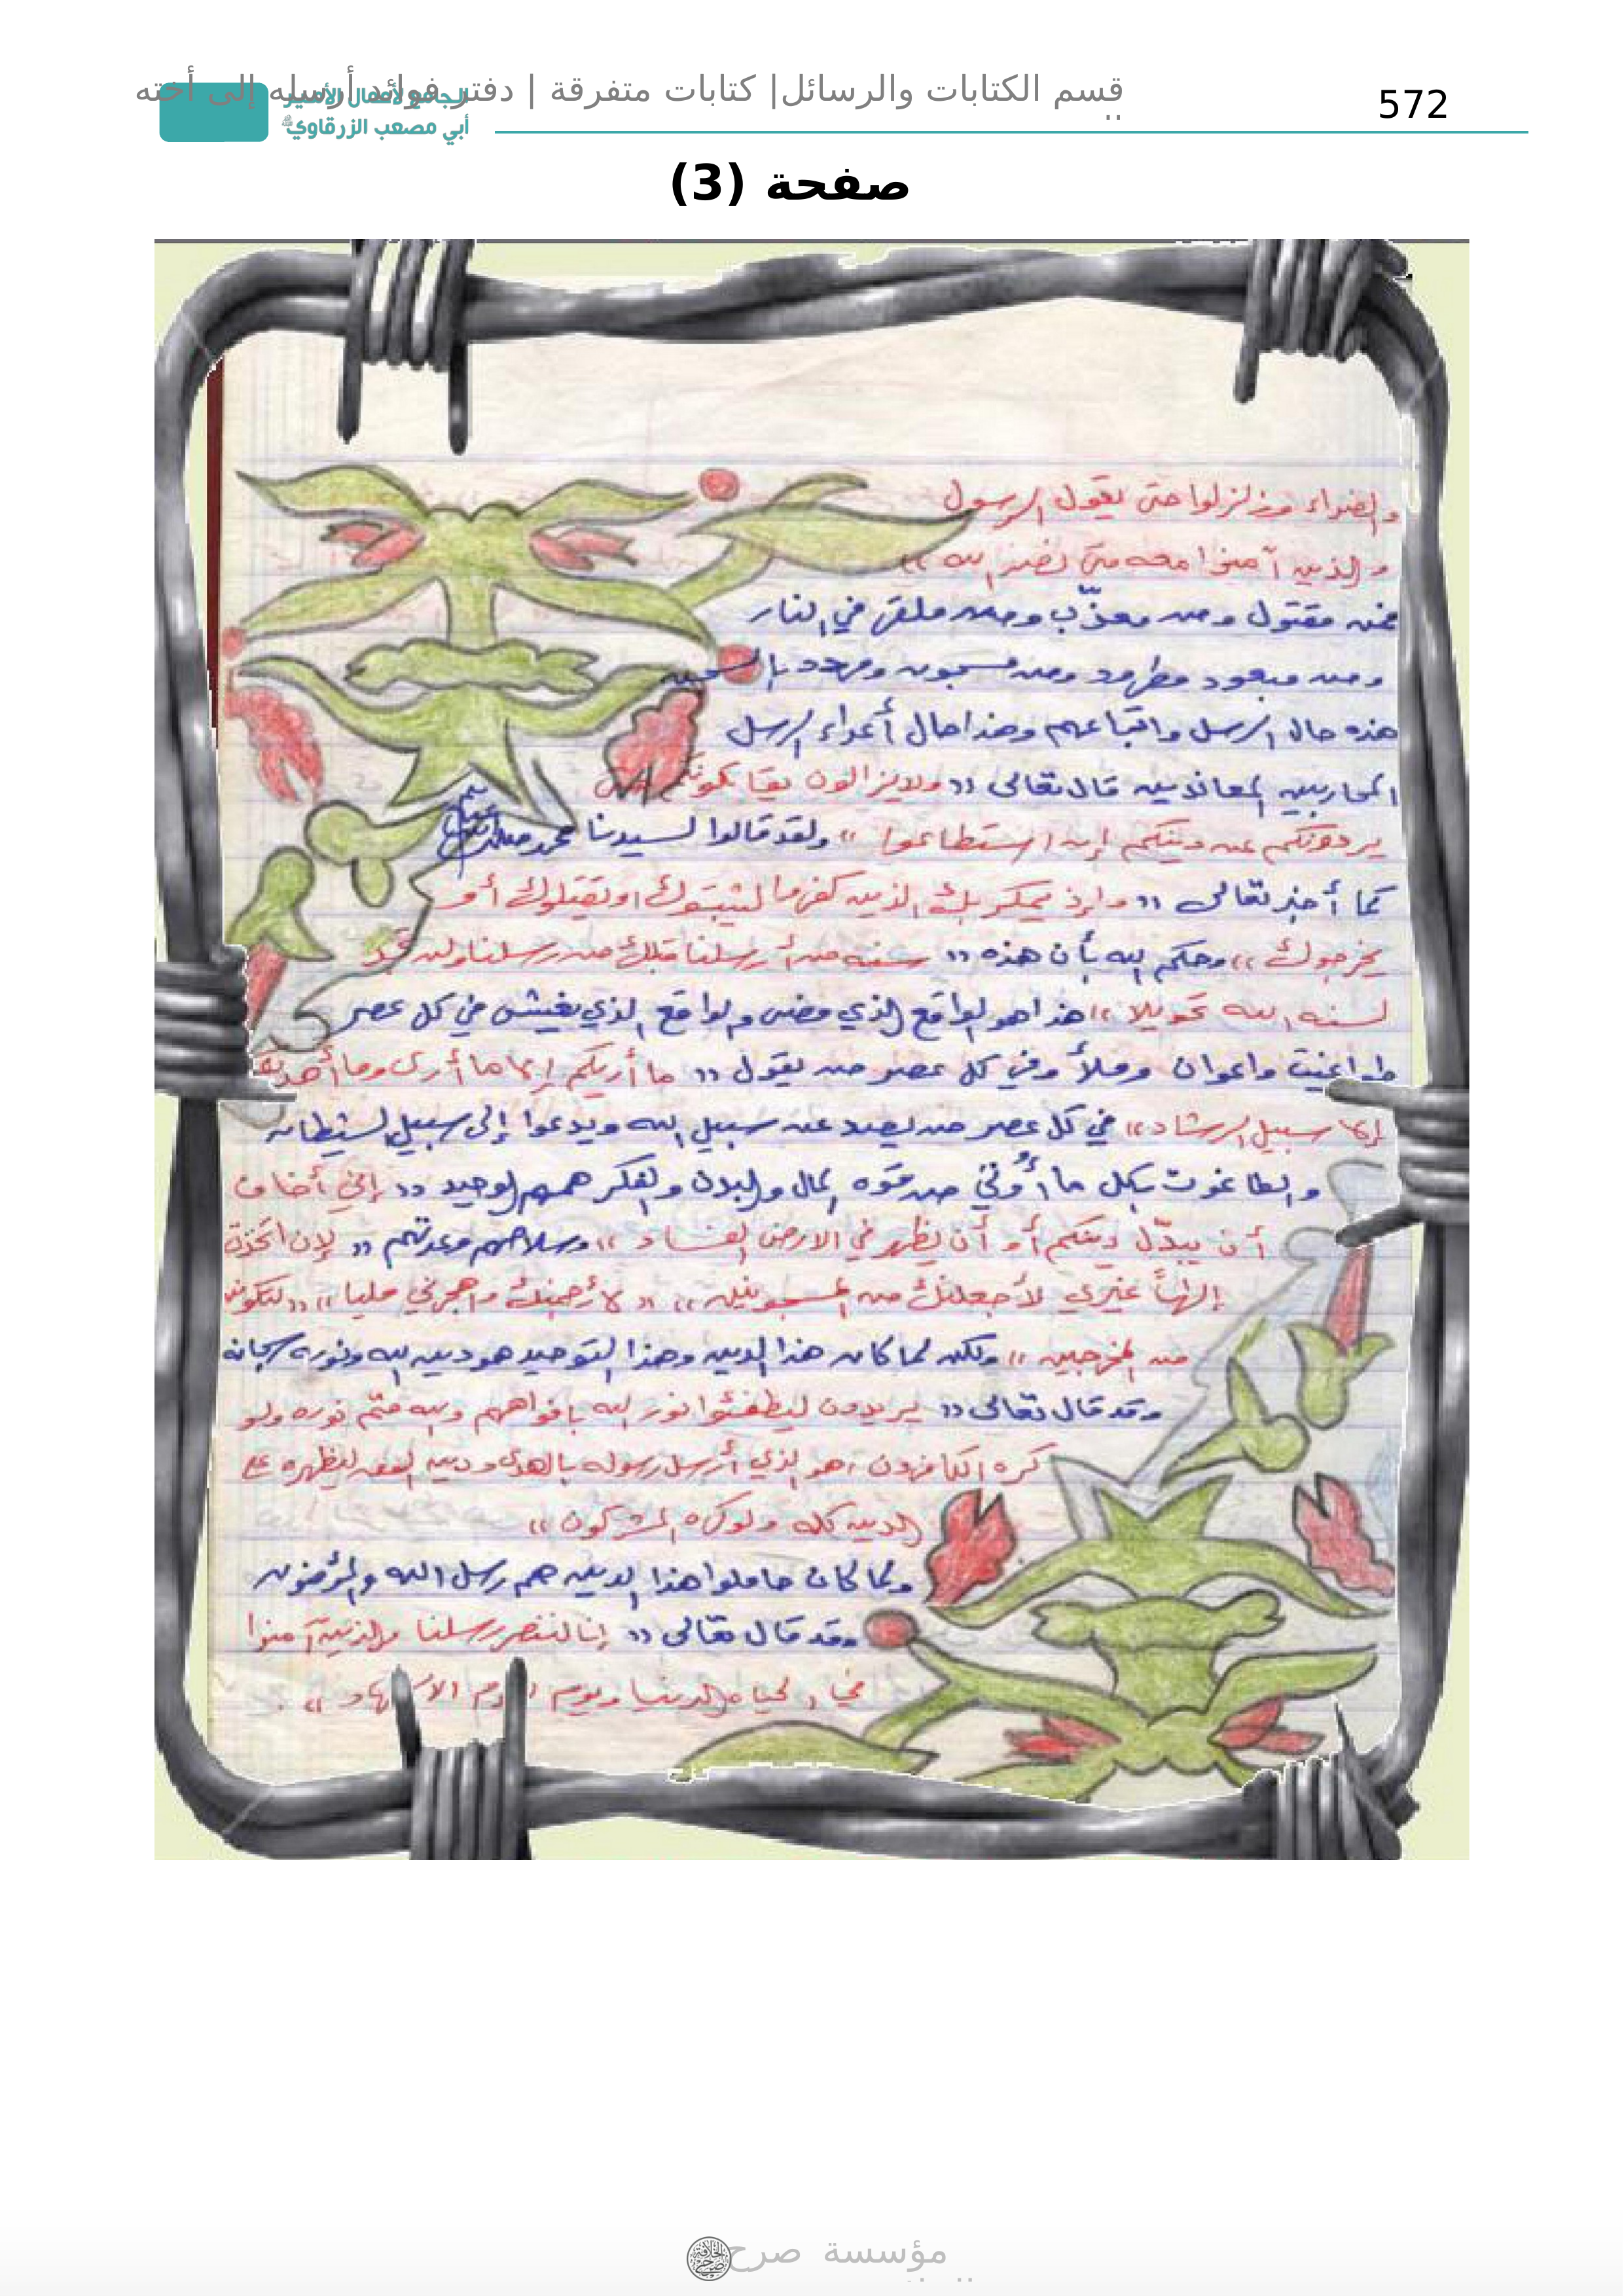 572
قسم الكتابات والرسائل| كتابات متفرقة | دفتر فوائد أرسله إلى أخته
الجامع لأعمال الأمير
أبي مصعب الزرقاوي
صفحة (3)
والضراء وزلزلوا حتى يقول الرسول
والذين آمنوا معه متى نصر الله »
فمن مقتول ومن معذّب ومن ملقى في النار
ومن مبعود مطرود ومن مسجون ومهدد بالسجن
هذه حال الرسل واتباعهم وهذا حال أعداء الرسل
المحاربين المعاندين قال تعالى « ولا يزالون يقاتلونكم حتى
يردوكم عن دينكم إن استطاعوا » ولقد قالوا لسيدنا محمد
كما أخبر تعالى « وإذ يمكر بك الذين كفروا ليثبتوك او يقتلوك أو
يخرجوك » وحكم الله بأن هذه « سنة من أرسلنا قبلك من رسلنا ولن تجد
لسنة الله تحويلا » هذا هو الواقع الذي مضى والواقع الذي يغيش في كل عصر
طواغيت واعوان وملأ وفي كل عصر من يقول « ما أريكم إلا ما أرى وما أهديكم
إلا سبيل الرشاد » في كل عصر من يصد عن سبيل الله ويدعوا إلى سبيل الشيطان
والطاغوت بكل ما أُوتي من قوه المال والبدن والفكر همهم الوحيد « إني أخاف
أن يبدّل دينكم أو أن يظهر في الارض الفساد » وسلاحهم وعدتهم « لإن اتخذت
إلهاً غيري لأجعلنك من المسجونين » « لأرجمنك واهجرني مليا » « لتكونن
من المخرجين » ولكن لما كان هذا الدين وهذا التوحيد هو دين الله ونوره سبحانه
وقد قال تعالى « يريدون ليطفئوا نور الله بافواههم والله متم نوره ولو
كره الكافرون ، هو الذي أرسل رسوله بالهدى ودين الحق ليظهره على
الدين كله ولو كره المشركون »
ولما كان حاملوا هذا الدين هم رسل الله والمؤمنون
وقد قال تعالى « إنا لننصر رسلنا والذين آمنوا
في الحياه الدنيا ويوم
مؤسسة صرح